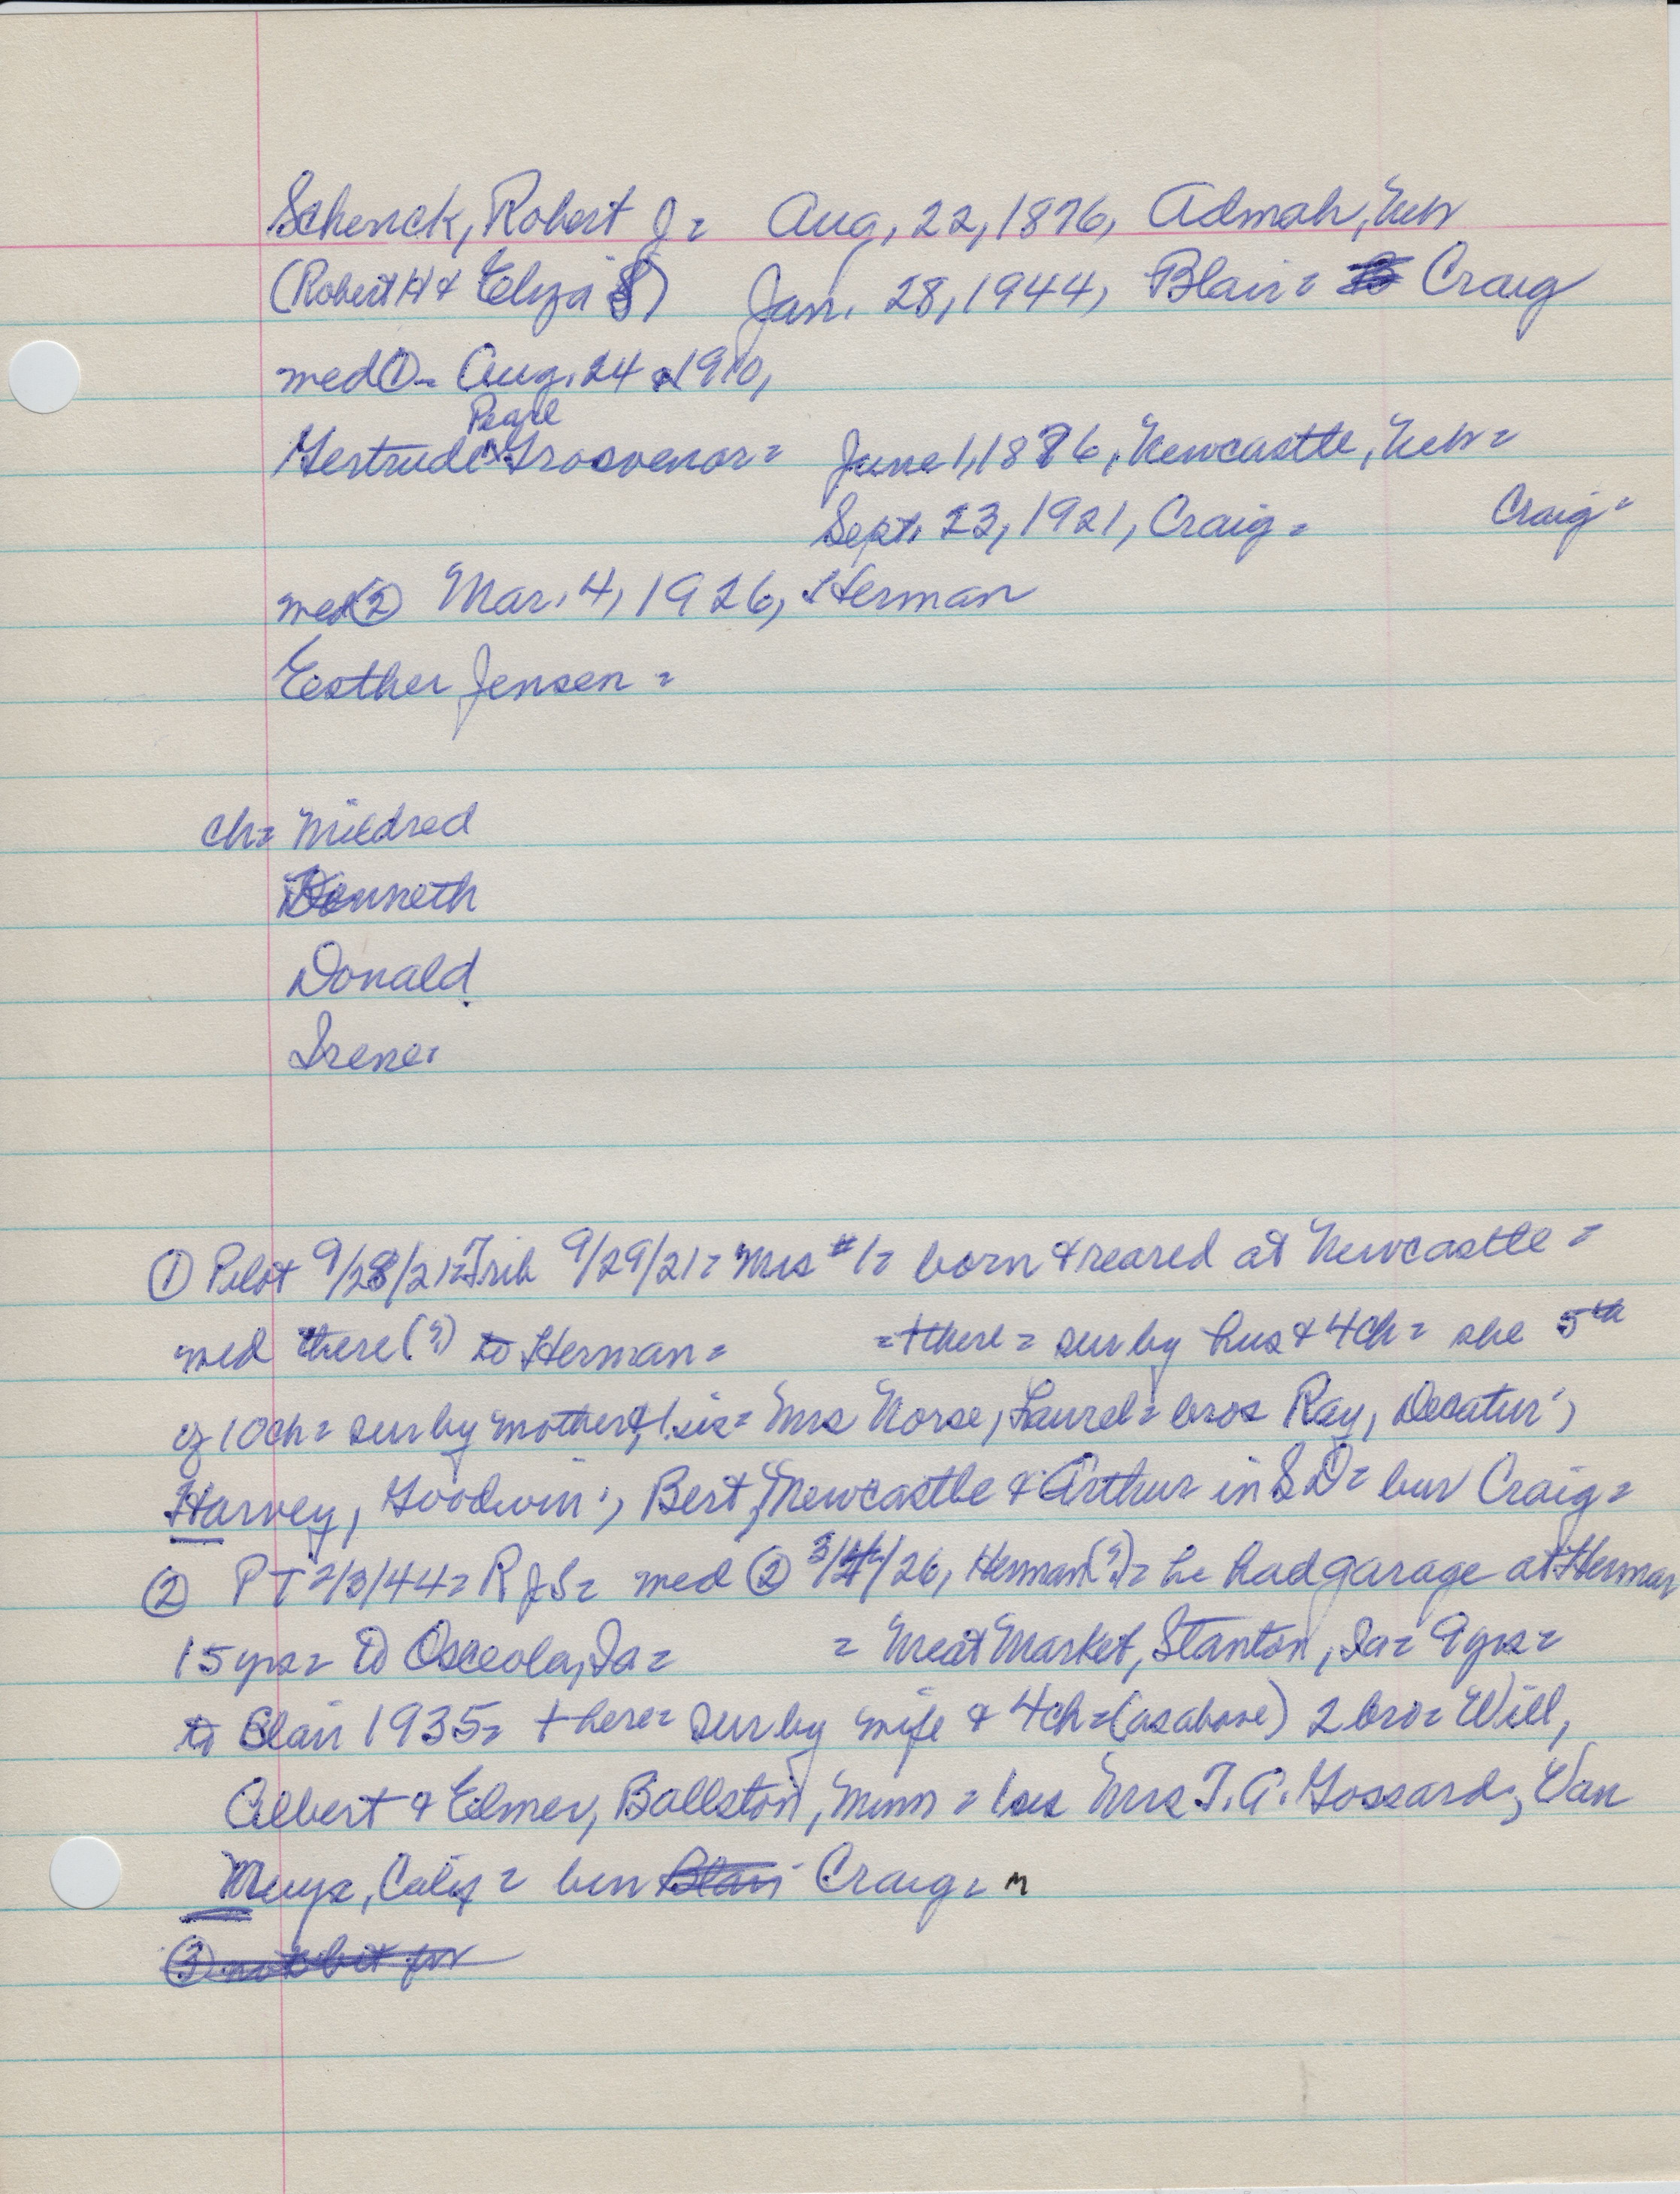 Schenck, Robert J = Aug, 22, 1876, Admah, Neb
(Robert H & Eliza S) Jan. 28, 1944, Blair = Craig
med ① - Aug. 24, 1910,
Pearl
Gertrude ^ Grosvenor = June 1, 1886, Newcastle, Neb =
Sept. 23, 1921, Craig = Craig =
med ② Mar. 4, 1926, Herman
Esther Jensen =
ch = Mildred
Kenneth
Donald
Irene =
① Pilot 9/28/21 = Trib 9/29/21 = Mrs #1 = born & reared at Newcastle =
med there (?) to Herman = = † there = sur by hus & 4 ch = she 5th
of 10 ch = sur by mother, & 1 sis = Mrs Norse, Laurel = bros Ray, Decatur;
Harvey, Goodwin; Bert, Newcastle & Arthur in S D = bur Craig =
② PT 2/3/44 = R J S = med ② 3/4/26, Herman (?) = he had garage at Herman
15 yrs = to Osceola, Ia = = Meat Market, Stanton, Ia = 9 yrs =
to Blair 1935 = † here = sur by wife & 4 ch = (as above) 2 bro = Will,
Albert & Elmer, Ballston, Minn = 1 sis Mrs T. A. Gossard, Van
Nuys, Calif = bur Blair Craig = M
③ not bit for